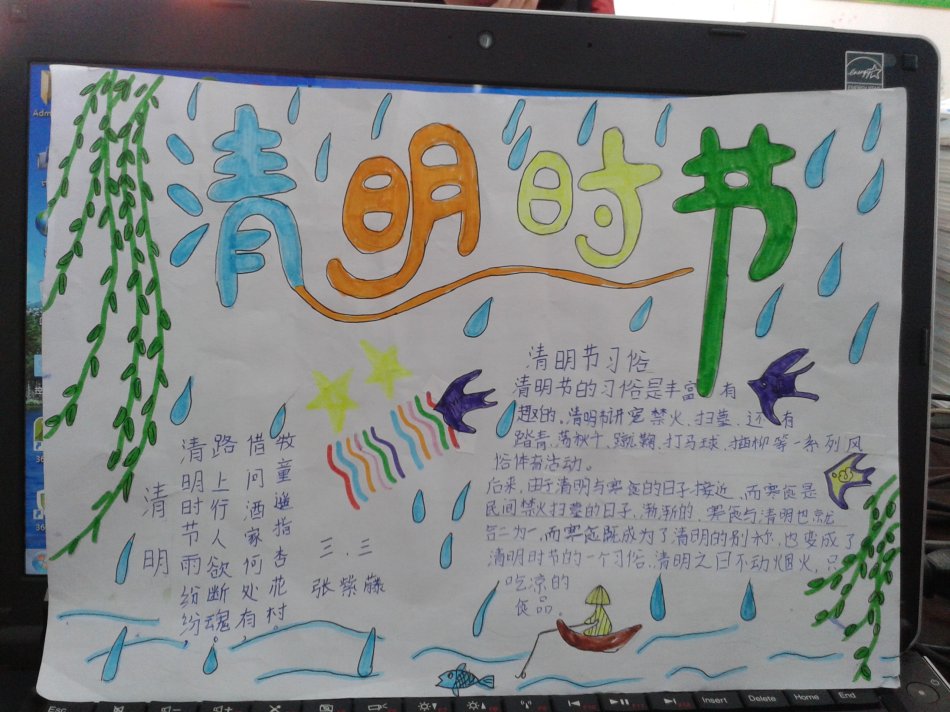 清明时节
清明
清明时节雨纷纷，
路上行人欲断魂。
借问酒家何处有，
牧童遥指杏花村。
三.三
张紫藤
清明节习俗
清明节的习俗是丰富 有
趣的。清明节讲究禁火、扫墓，还有
踏青、荡秋千、蹴鞠、打马球、插柳等一系列风
俗体育活动。
后来，由于清明与寒食的日子接近，而寒食是
民间禁火扫墓的日子，渐渐的，寒食与清明也就
合二为一，而寒食既成为了清明的别称，也变成了
清明时节的一个习俗，清明之日不动烟火，只
吃凉的
食品。
Insert
Delete
Home
End
Esc